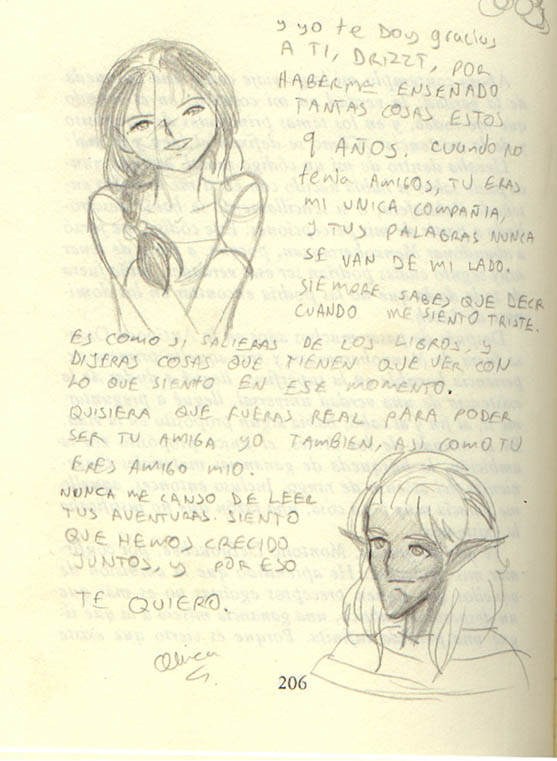 y yo te doy gracias
A TI, DRIZZT, POR
HABERME ENSEÑADO
TANTAS COSAS ESTOS
9 AÑOS. CUANDO NO
tenía AMIGOS, TU ERAS
MI UNICA COMPAÑIA,
Y TUS PALABRAS NUNCA
SE VAN DE MI LADO.
SIEMPRE SABES QUE DECIR
CUANDO ME SIENTO TRISTE.
ES COMO SI SALIERAS DE LOS LIBROS, Y
DIJERAS COSAS QUE TIENEN QUE VER CON
LO QUE SIENTO EN ESE MOMENTO.
QUISIERA QUE FUERAS REAL PARA PODER
SER TU AMIGA YO TAMBIEN, ASI COMO TU
ERES AMIGO MIO.
NUNCA ME CANSO DE LEER
TUS AVENTURAS. SIENTO
QUE HEMOS CRECIDO
JUNTOS, Y POR ESO
TE QUIERO.
206